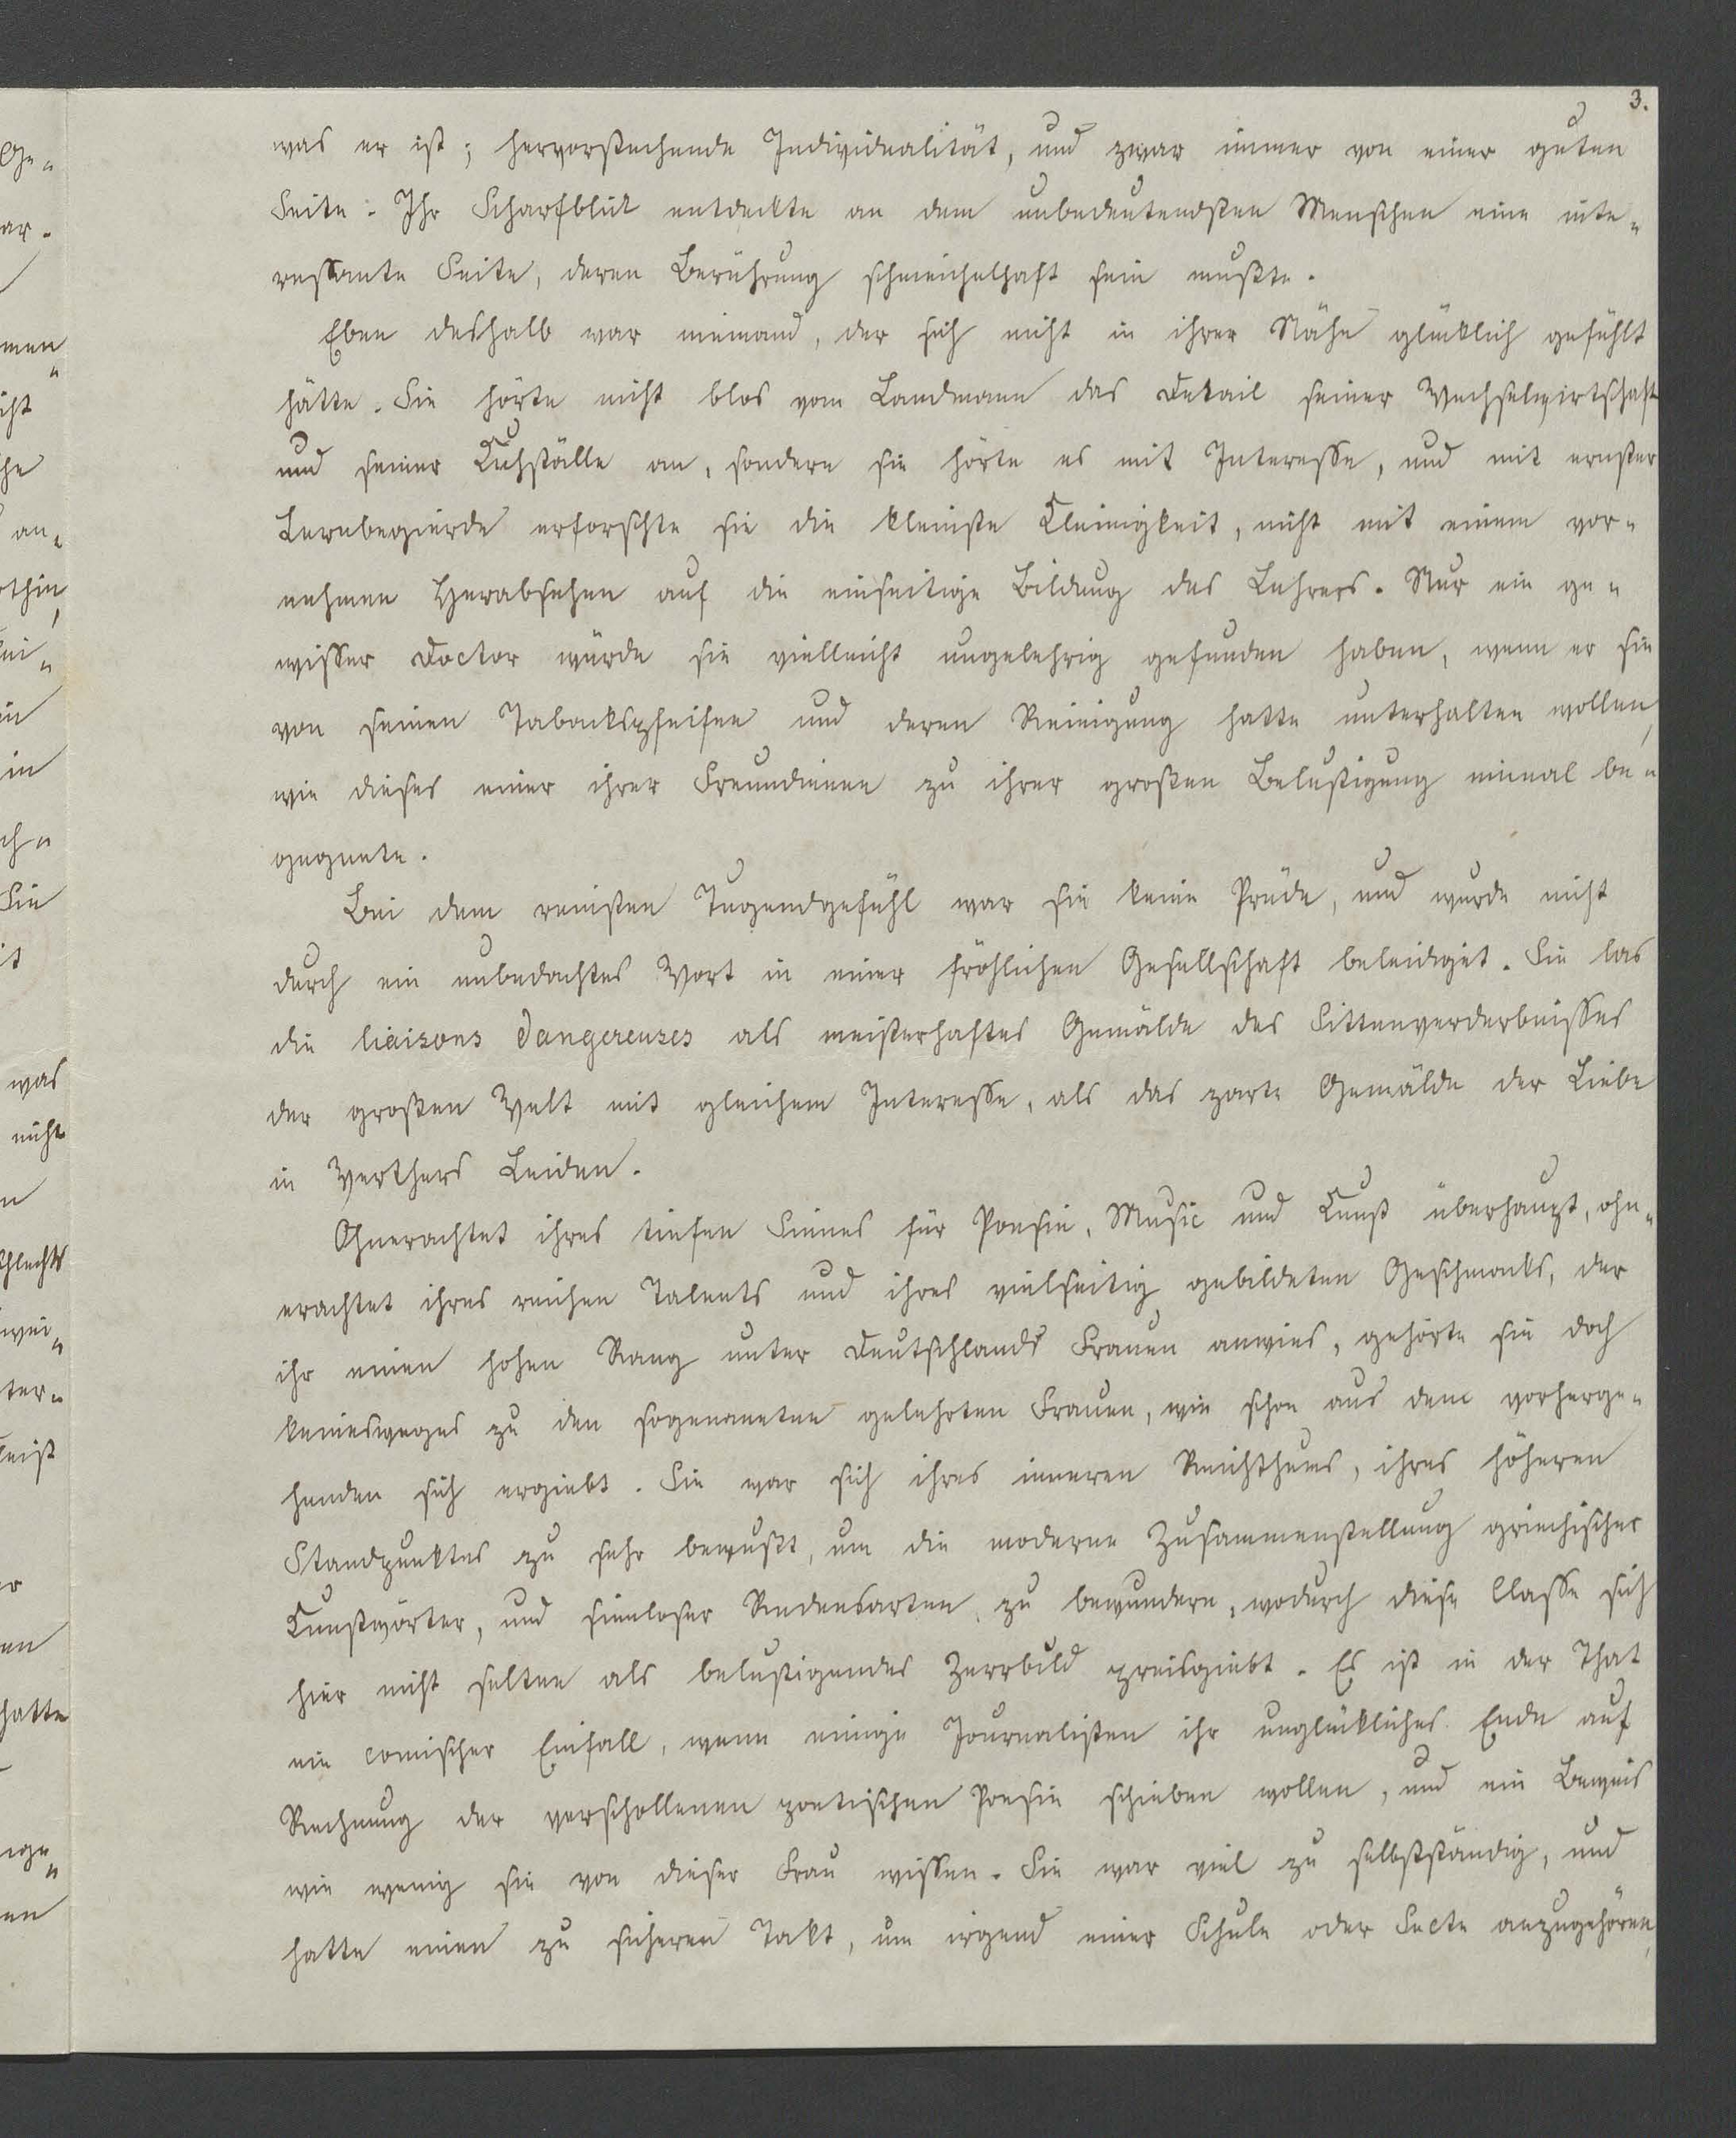 3.
was er ist; hervorstechende Individualität, und zwar immer von einer guten
Seite. Ihr Scharfblick entdeckte an dem unbedeutendsten Menschen eine inte-
ressante Seite, deren Berührung schmeichelhaft sein mußte.
Eben deshalb war niemand, der sich nicht in ihrer Nähe glücklich gefühlt
hätte. Sie hörte nicht blos vom Landmann das Detail seiner Wechselwirtschaft
und seiner Kuhställe an, sondern sie hörte es mit Interesse, und mit ernster
Lernbegierde erforschte sie die kleinste Kleinigkeit, nicht mit einem vor-
nehmen Herabsehen auf die einseitige Bildung des Lehrers. Nur ein ge-
wisser Doctor würde sie vielleicht ungelehrig gefunden haben, wenn er sie
von seinen Tabackspfeifen und deren Reinigung hatte unterhalten wollen,
wie dieses einer ihrer Freundinnen zu ihrer großen Belustigung einmal be-
gegnete.
Bei dem reinsten Tugendgefühl war sie keine Prüde, und wurde nicht
durch ein unbedachtes Wort in einer fröhlichen Gesellschaft beleidiget. Sie las
die liaisons dangereuses als meisterhaftes Gemälde des Sittenverderbnisses
der großen Welt mit gleichem Interesse, als das zarte Gemälde der Liebe
in Werthers Leiden.
Ohnerachtet ihres tiefen Sinnes für Poesie, Music und Kunst überhaupt, ohn-
erachtet ihres reichen Talents und ihres vielseitig gebildeten Geschmacks, der
ihr einen hohen Rang unter Deutschlands Frauen anwies, gehörte sie doch
keinesweges zu den sogenannten gelehrten Frauen, wie schon aus dem vorherge-
henden sich ergiebt. Sie war sich ihres inneren Reichthums, ihres höheren
Standpunktes zu sehr bewußt, um die moderne Zusammenstellung griechischer
Kunstwörter, und sinnloser Redensarten zu bewundern, wodurch diese Classe sich
hier nicht selten als belustigendes Zerrbild preisgiebt. Es ist in der That
ein comischer Einfall, wenn einige Journalisten ihr unglückliches Ende auf
Rechnung der verschollenen poetischen Poesie schieben wollen, und ein Beweis
wie wenig sie von dieser Frau wissen. Sie war viel zu selbstständig, und
hatte einen zu sicheren Takt, um irgend einer Schule oder Secte anzugehören,